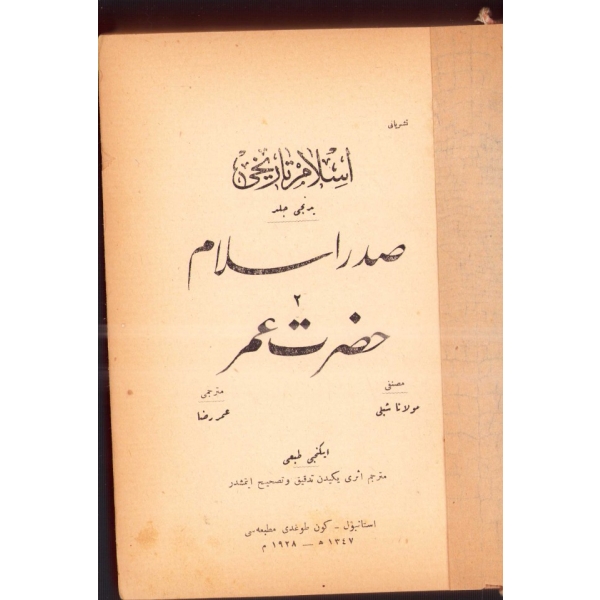 نشریاتی
اسلام تاریخی
یدنجی جلد
صدر اسلام
۲
حضرت عمر
مصنفی
مولانا شبلی
مترجمی
عمر رضا
ایکنجی طبعی
مترجم اثری یکیدن تدقیق و تصحیح ایتمشدر
استانبول - کون طوغدی مطبعه‌سی
۱۳٤۷ ه — ۱۹۲۸ م